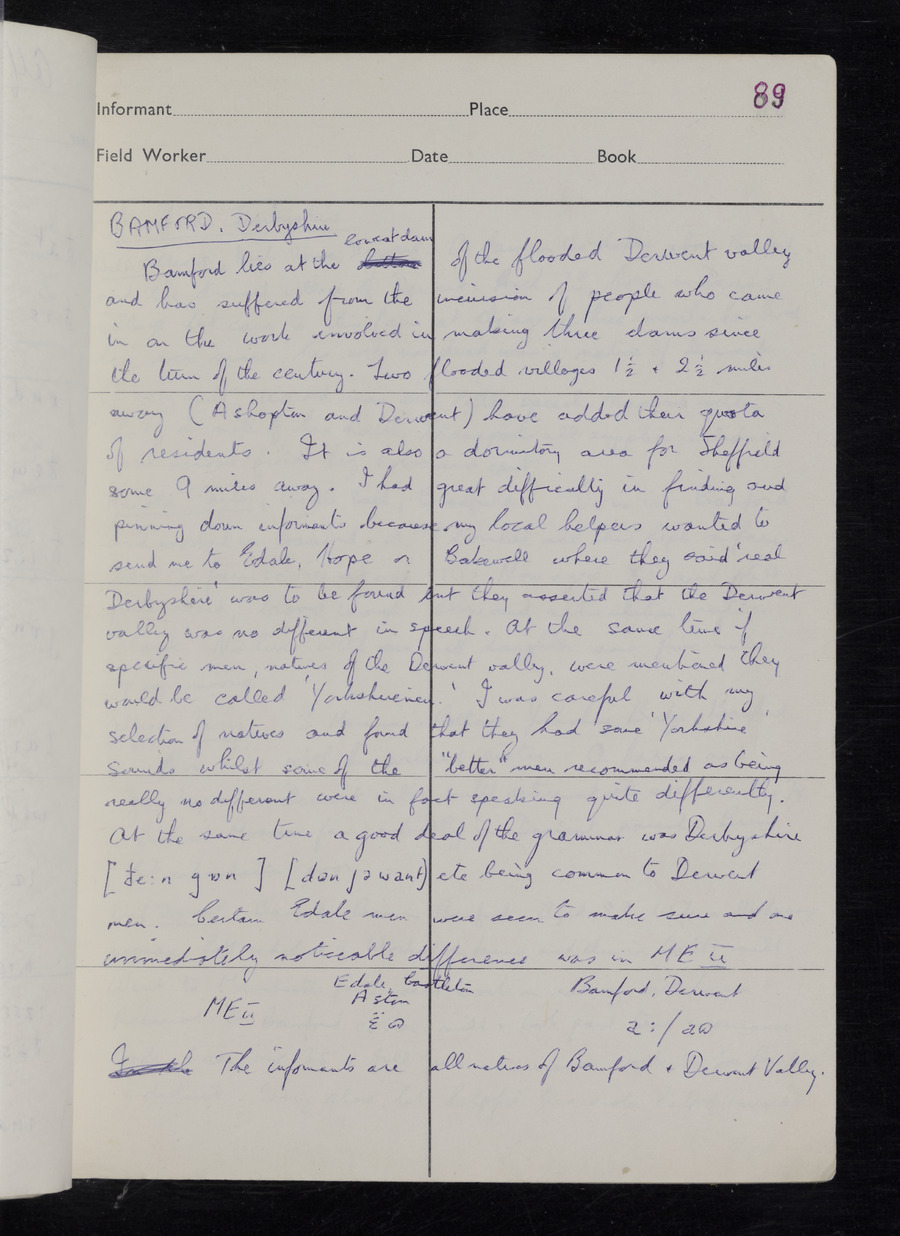 89
Informant Place
Field Worker Date Book
BAMFORD. Derbyshire
lowest dam
Bamford lies at the bottom of the flooded Derwent valley
and has suffered from the incursion of people who came
in on the work involved in making three dams since
the turn of the century. Two flooded villages 1½ + 2½ miles
away (Ashopton and Derwent) have added their quota
of residents. It is also a dormitory area for Sheffield
some 9 miles away. I had great difficulty in finding and
pinning down informants because my local helpers wanted to
send me to Edale, Hope or Bakewell where they said 'real
Derbyshire' was to be found but they asserted that the Derwent
valley was no different in speech. At the same time if
specific men, natives of the Derwent valley, were mentioned they
would be called 'Yorkshiremen.' I was careful with my
selection of natives and found that they had some 'Yorkshire'
sounds whilst some of the "better" men recommended as being
really no different were in fact speaking quite differently.
At the same time a good deal of the grammar was Derbyshire
[ðe:n gʊn] [dən jə want] etc being common to Derwent
men. Certain Edale men were seen to make sure and one
immediately noticeable difference was in ME ū
Edale, Castleton Bamford, Derwent
Aston
ME ū a:/aʊ
The informants are all natives of Bamford + Derwent Valley.